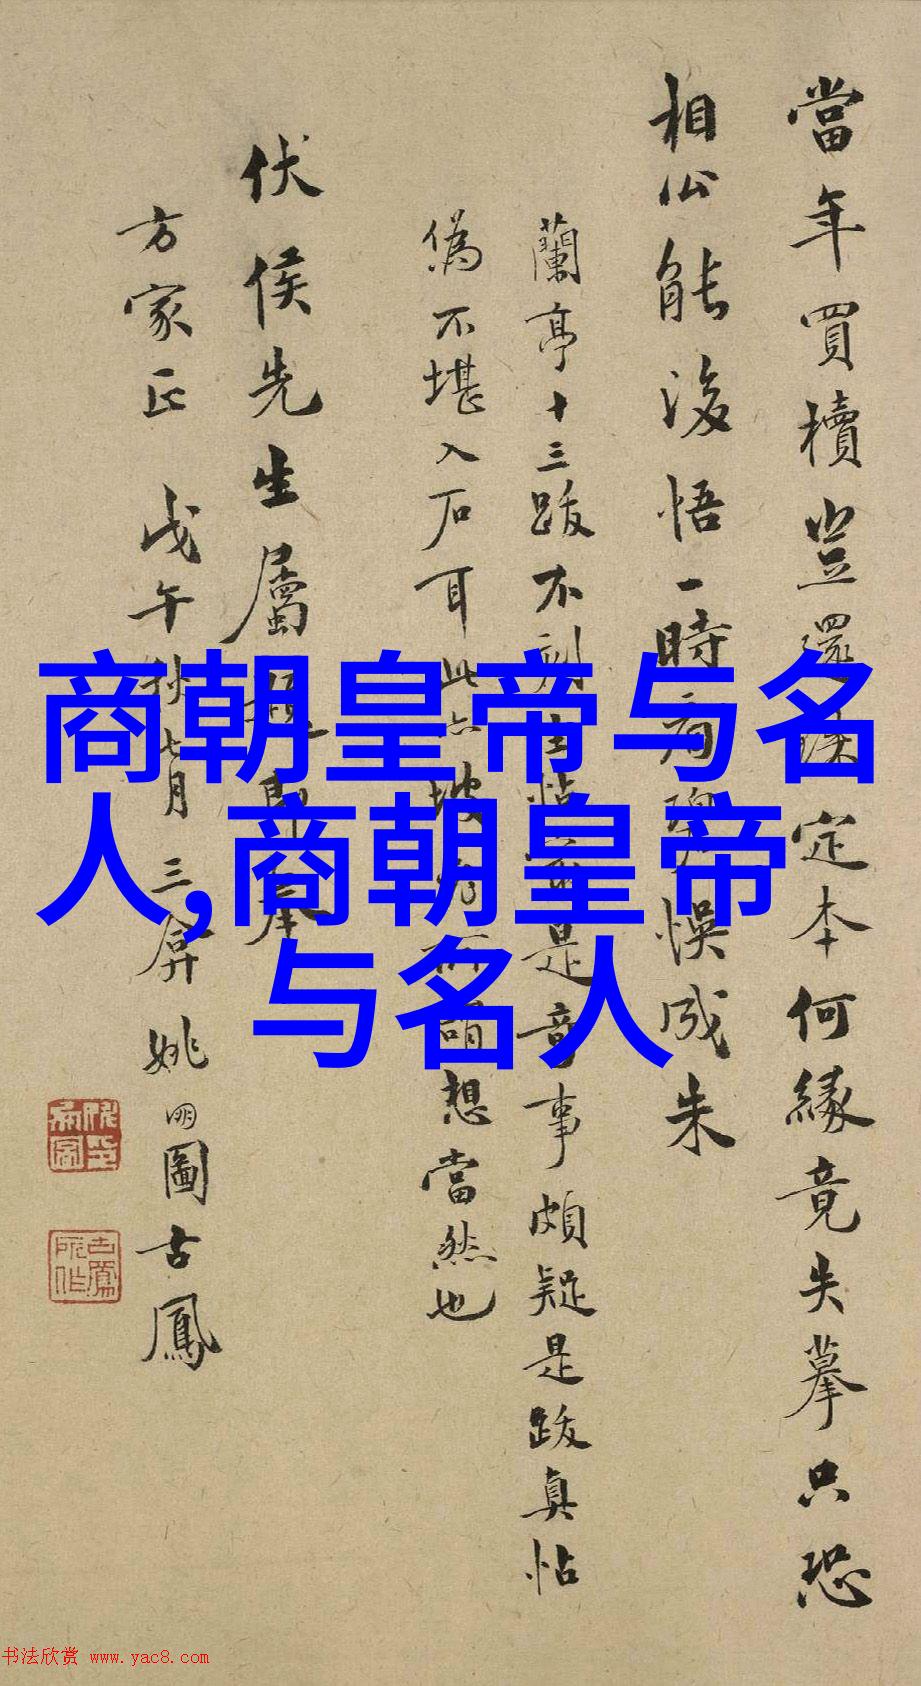 當年買櫝豈還珠定本何緣竟失摹只恐
相公能後悟一時有碧悞成朱
蘭亭十三跋不刻 帖 是奇事頗疑是跋真帖
偽不堪入石耳此六坡 所謂想當然也
伏侯先生屬 即奉
方家正 戊午秋七月三弟姚 圖古鳳
商朝皇帝与名
人,商朝皇帝
与名人
书法欣赏 www.yac8.com